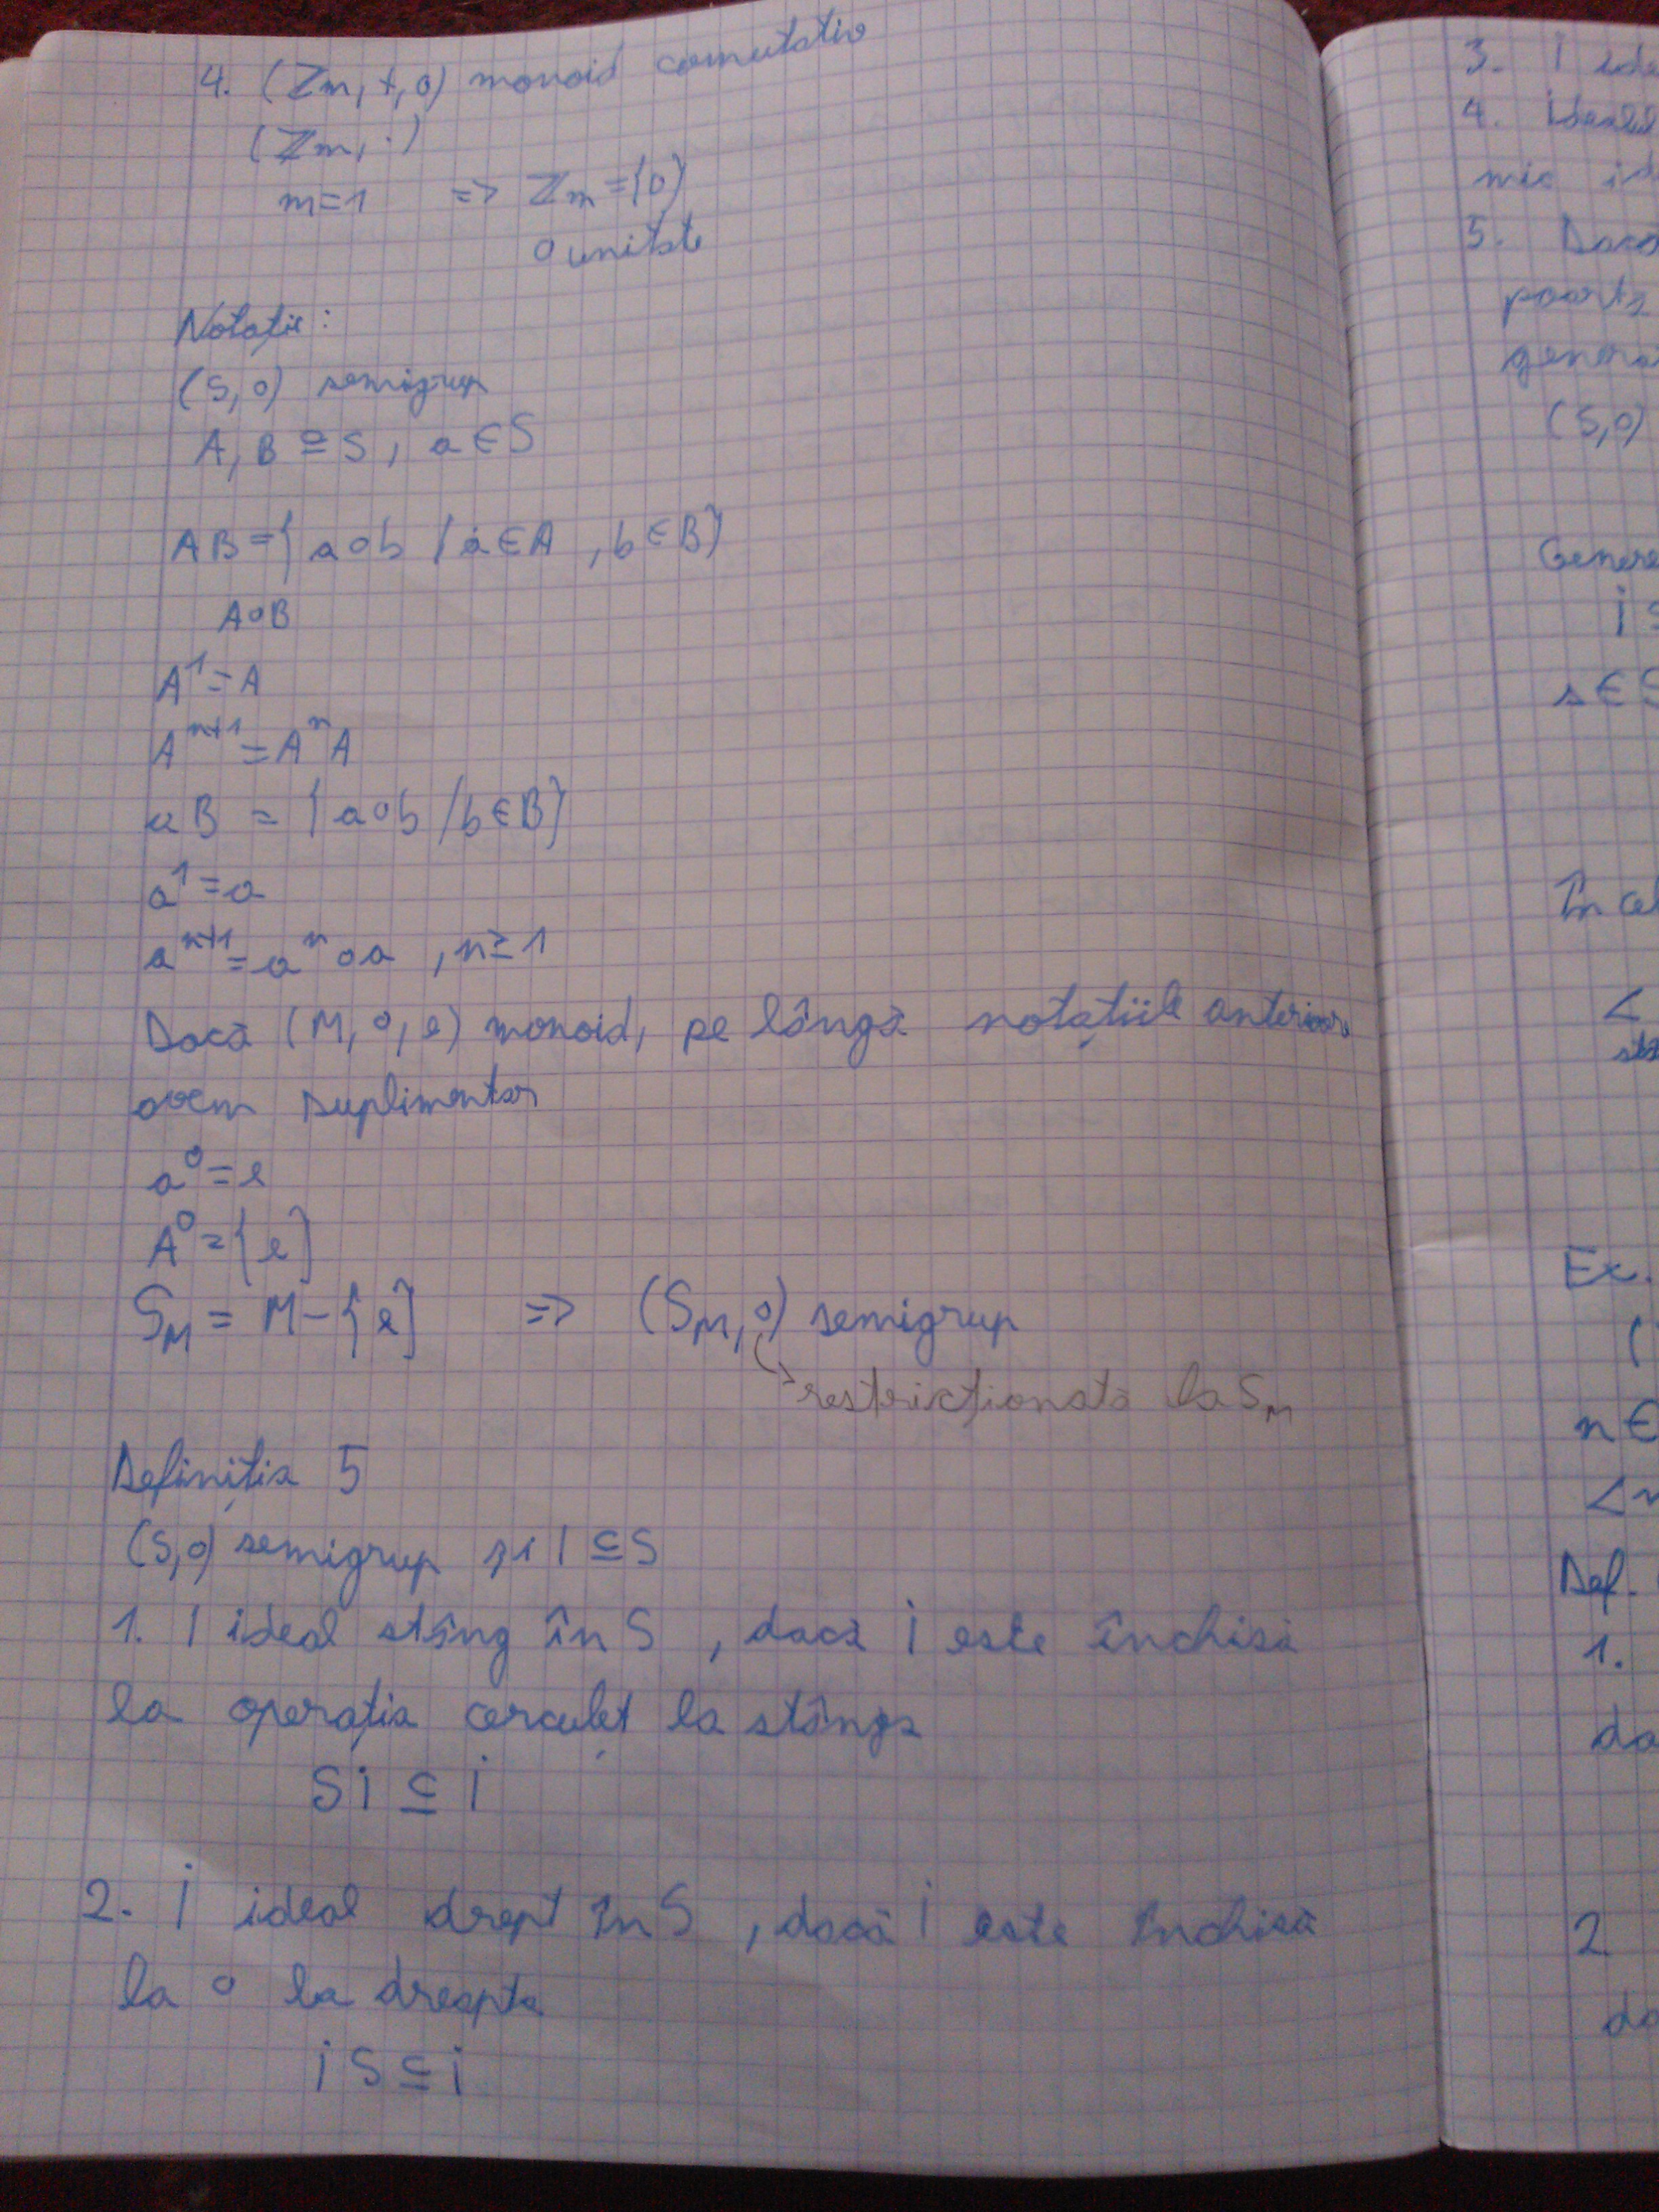 4. (Zm, +, 0) monoid comutativ
(Zm, ·)
m=1 => Zm = {0}
0 unitate
Notație:
(S, o) semigrup
A, B ⊆ S, a ∈ S
AB = { a o b / a ∈ A, b ∈ B }
A o B
A¹ = A
Aⁿ⁺¹ = AⁿA
aB = { a o b / b ∈ B }
a¹ = a
aⁿ⁺¹ = aⁿ o a, n ≥ 1
Dacă (M, o, e) monoid, pe lângă notațiile anterioare
avem suplimentar
a⁰ = e
A⁰ = {e}
S_M = M - {e} => (S_M, o) semigrup
restricționată la S_M
Definiția 5
(S, o) semigrup și I ⊆ S
1. I ideal stâng în S, dacă I este închisă
la operația cerculeț la stânga
SI ⊆ I
2. I ideal drept în S, dacă I este închisă
la o la dreapta
IS ⊆ I
3. I
4. Idealul
mic
5. Dacă
poartă
(S, o)
I
s ∈ S
În
<
Ex.
(
n ∈
<
Def.
1.
2